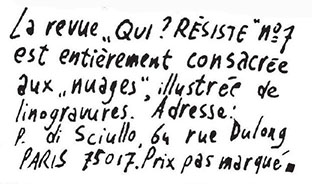 La revue „QUI? RÉSISTE" nº7
est entièrement consacrée
aux „nuages", illustrée de
linogravures. Adresse:
P. di Sciullo, 64 rue Dulong
PARIS 75017. Prix pas marqué.